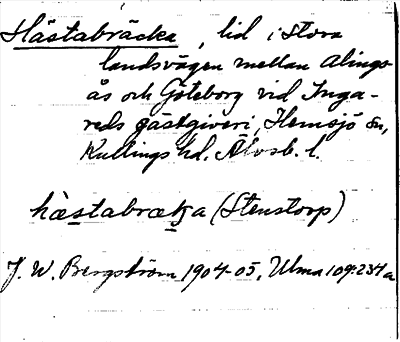 Hästabräcka, lid i stora
landsvägen mellan Alings-
ås och Göteborg vid Inga-
reds gästgiveri, Hemsjö sn,
Kullings hd. Älvsb. l.
hæstabræka (Stenstorp)
J. W. Bergström 1904-05, Ulma 109:234 a